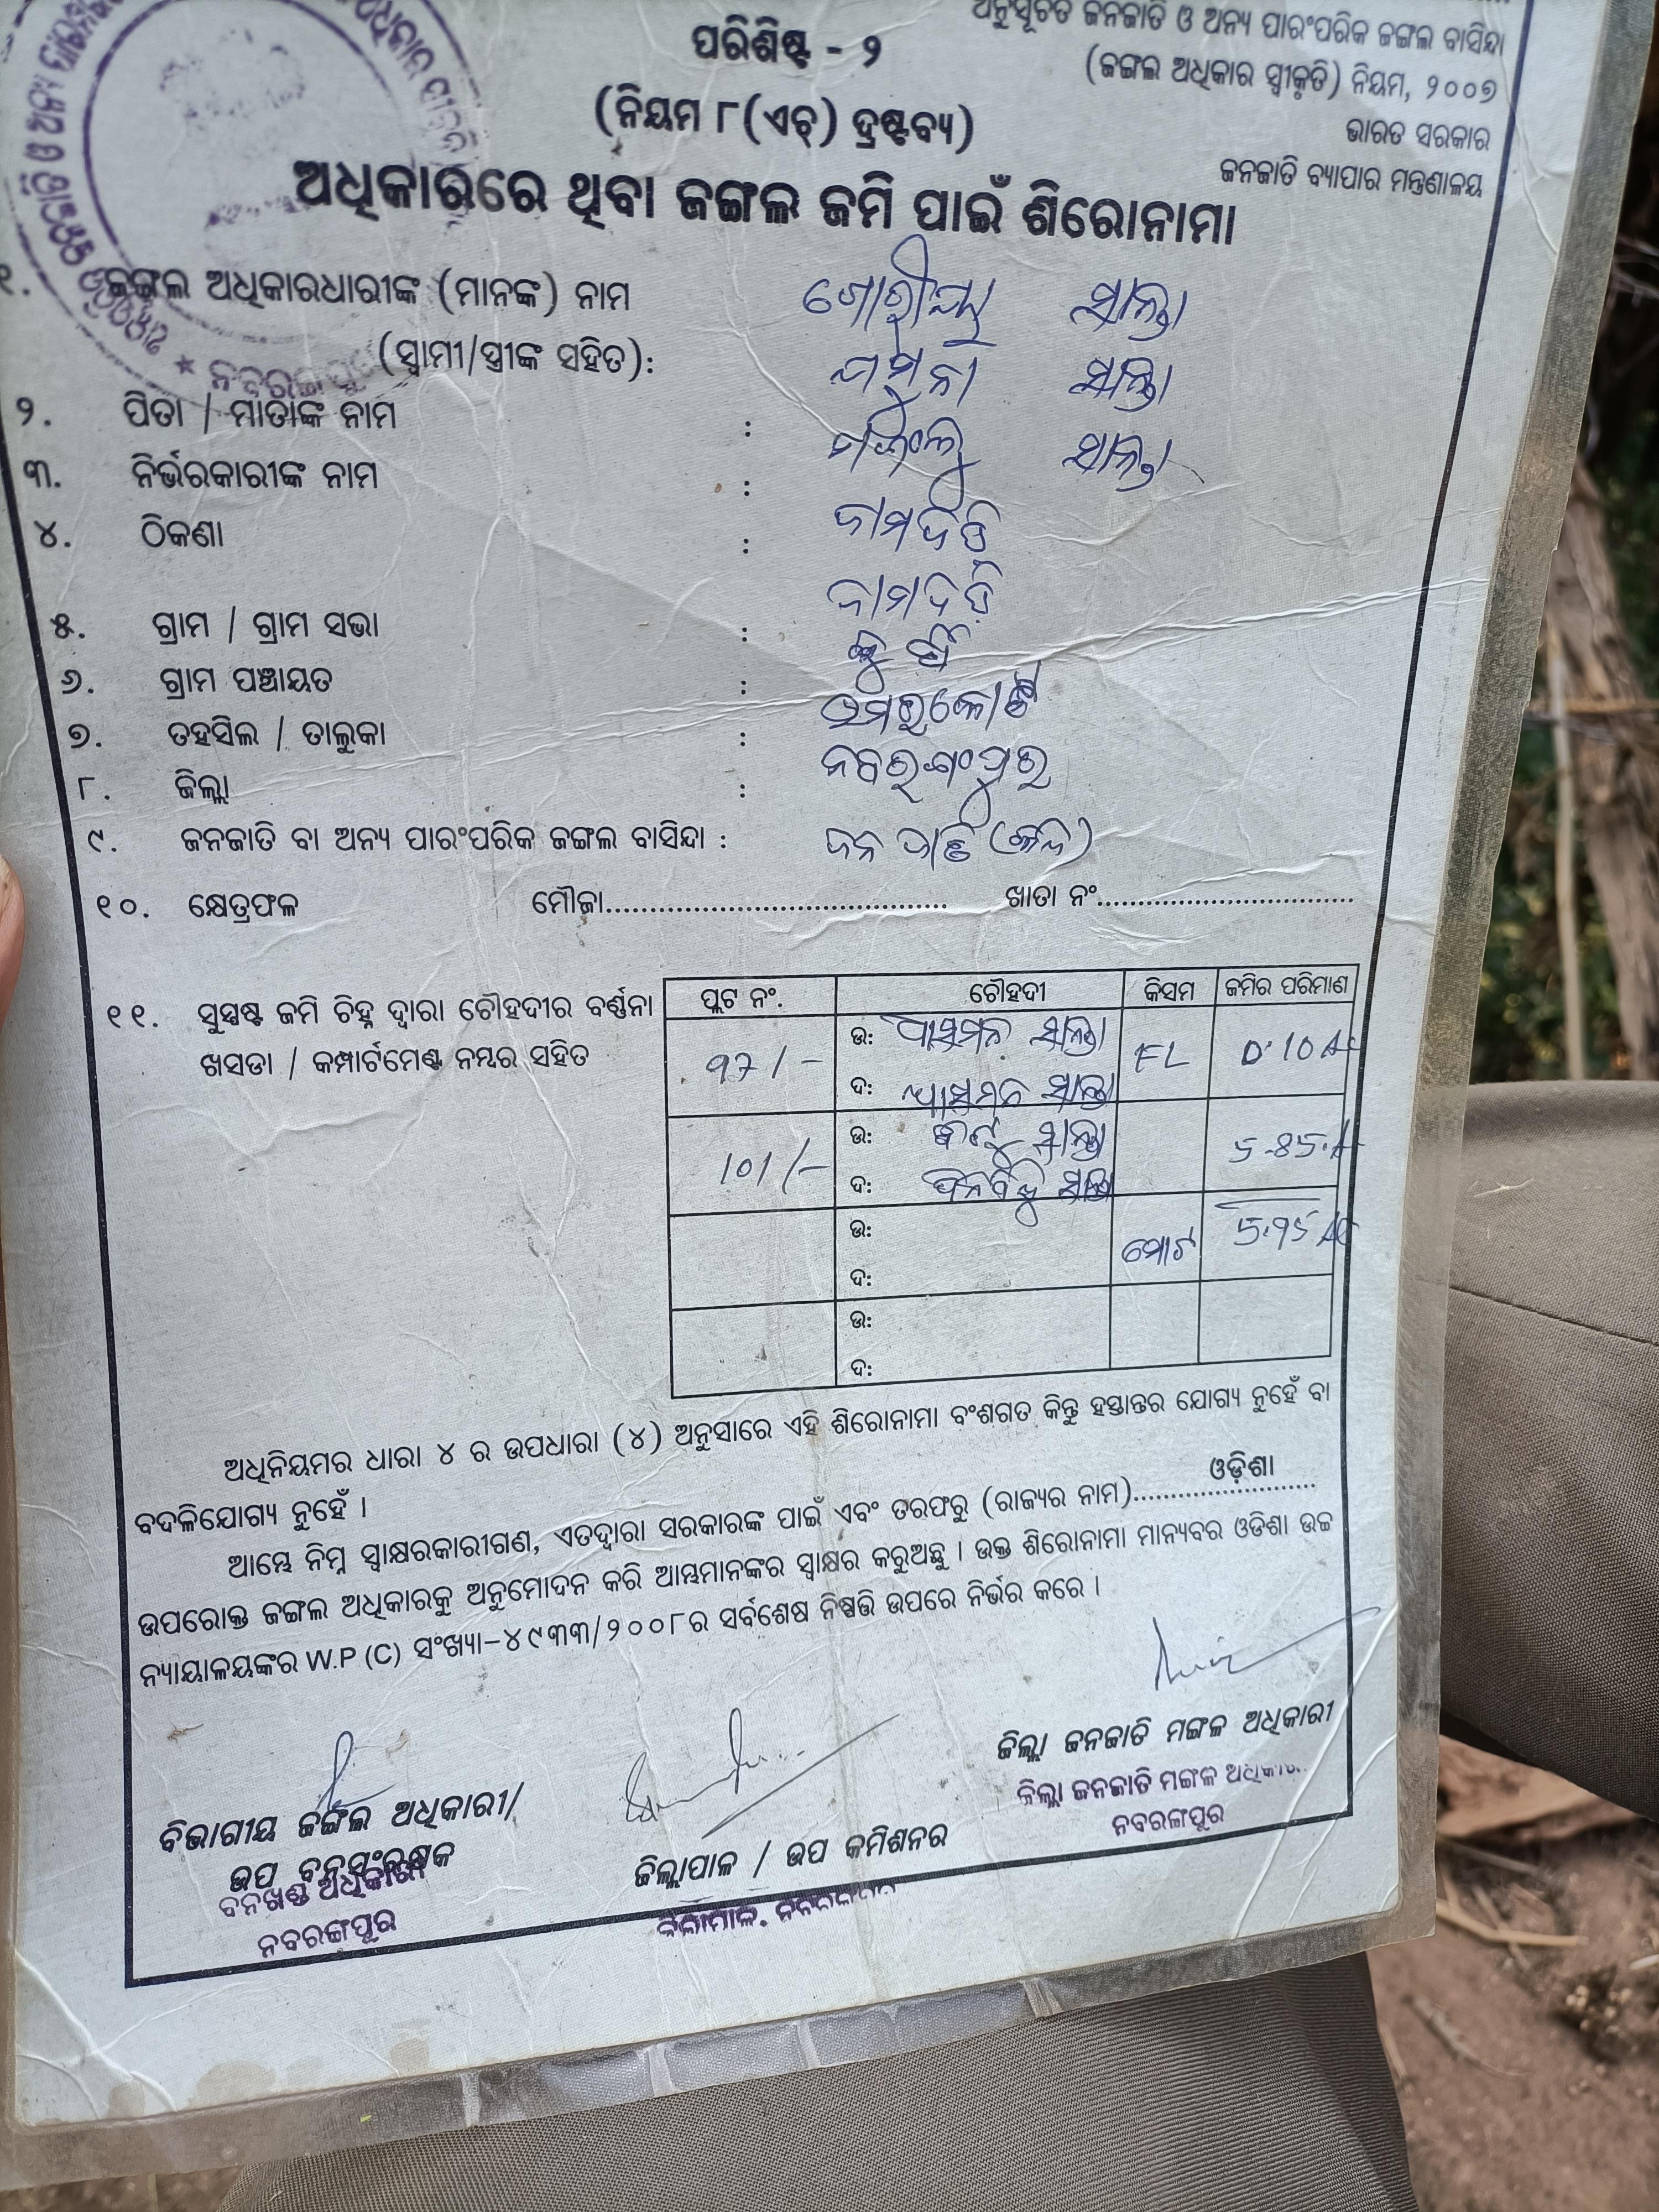 ପରିଶିଷ୍ଟ - ୨
ଅନୁସୂଚିତ ଜନଜାତି ଓ ଅନ୍ୟ ପାରଂପରିକ ଜଙ୍ଗଲ ବାସିନ୍ଦା
(ଜଙ୍ଗଲ ଅଧିକାର ସ୍ୱୀକୃତି) ନିୟମ, ୨୦୦୭
ଭାରତ ସରକାର
ଜନଜାତି ବ୍ୟାପାର ମନ୍ତ୍ରଣାଳୟ
(ନିୟମ ୮(ଏଚ୍) ଦ୍ରଷ୍ଟବ୍ୟ)
ଅଧିକାରରେ ଥିବା ଜଙ୍ଗଲ ଜମି ପାଇଁ ଶିରୋନାମା
୧. ଜଙ୍ଗଲ ଅଧିକାରଧାରୀଙ୍କ (ମାନଙ୍କ) ନାମ ସାନ୍ତା
(ସ୍ୱାମୀ/ସ୍ତ୍ରୀଙ୍କ ସହିତ): ଯମୁନା ସାନ୍ତା
୨. ପିତା / ମାତାଙ୍କ ନାମ : ସାନ୍ତା
୩. ନିର୍ଭରକାରୀଙ୍କ ନାମ :
୪. ଠିକଣା :
୫. ଗ୍ରାମ / ଗ୍ରାମ ସଭା :
୬. ଗ୍ରାମ ପଞ୍ଚାୟତ :
୭. ତହସିଲ / ତାଲୁକା : ଉମରକୋଟ
୮. ଜିଲ୍ଲା : ନବରଂଗପୁର
୯. ଜନଜାତି ବା ଅନ୍ୟ ପାରଂପରିକ ଜଙ୍ଗଲ ବାସିନ୍ଦା : ଜନ ଜାତି
୧୦. କ୍ଷେତ୍ରଫଳ ମୌଜା........................................ ଖାତା ନଂ..............................
୧୧. ସୁସ୍ପଷ୍ଟ ଜମି ଚିହ୍ନ ଦ୍ୱାରା ଚୌହଦୀର ବର୍ଣ୍ଣନା
ଖସଡା / କମ୍ପାର୍ଟମେଣ୍ଟ ନମ୍ବର ସହିତ
ପ୍ଲଟ ନଂ. ଚୌହଦୀ କିସମ ଜମିର ପରିମାଣ
97/- ଉ: ସାନ୍ତା FL 0.10 Ac
ଦ: ସାନ୍ତା
101/- ଉ: ସାନ୍ତା 5.85
ଦ: ସାନ୍ତା
ଉ: ମୋଟ 5.95 Ac
ଦ:
ଉ:
ଦ:
ଅଧିନିୟମର ଧାରା ୪ ର ଉପଧାରା (୪) ଅନୁସାରେ ଏହି ଶିରୋନାମା ବଂଶଗତ କିନ୍ତୁ ହସ୍ତାନ୍ତର ଯୋଗ୍ୟ ନୁହେଁ ବା
ବଦଳିଯୋଗ୍ୟ ନୁହେଁ ।
ଆମ୍ଭେ ନିମ୍ନ ସ୍ୱାକ୍ଷରକାରୀଗଣ, ଏତଦ୍ୱାରା ସରକାରଙ୍କ ପାଇଁ ଏବଂ ତରଫରୁ (ରାଜ୍ୟର ନାମ)....ଓଡ଼ିଶା....
ଉପରୋକ୍ତ ଜଙ୍ଗଲ ଅଧିକାରକୁ ଅନୁମୋଦନ କରି ଆମ୍ଭମାନଙ୍କର ସ୍ୱାକ୍ଷର କରୁଅଛୁ । ଉକ୍ତ ଶିରୋନାମା ମାନ୍ୟବର ଓଡିଶା ଉଚ୍ଚ
ନ୍ୟାୟାଳୟଙ୍କର W.P (C) ସଂଖ୍ୟା-୪୯୩୩/୨୦୦୮ର ସର୍ବଶେଷ ନିଷ୍ପତ୍ତି ଉପରେ ନିର୍ଭର କରେ ।
ଜିଲ୍ଲା ଜନଜାତି ମଙ୍ଗଳ ଅଧିକାରୀ
ଜିଲ୍ଲା ଜନଜାତି ମଙ୍ଗଳ
ନବରଙ୍ଗପୁର
ବିଭାଗୀୟ ଜଙ୍ଗଲ ଅଧିକାରୀ/
ଉପ ବନସଂରକ୍ଷକ
ବନଖଣ୍ଡ ଅଧିକାରୀ
ନବରଙ୍ଗପୁର
ଜିଲ୍ଲାପାଳ / ଉପ କମିଶନର